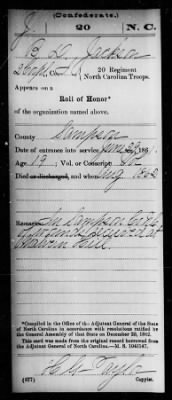 (Confederate.)
J 20 N.C.
Jackson
20 Regiment
North Carolina Troops.
Appears on a
Roll of Honor*
of the organization named above.
County Sampson
Date of entrance into service June 186
Age 19; Vol. or Conscript
Died or discharged, and when Aug 1862
Remarks: In Sampson
wounds received at
Malvern Hill
*Compiled in the Office of the Adjutant General of the State
of North Carolina in accordance with resolutions ratified by
the General Assembly of that State on December 20, 1862.
This card was made from the original record borrowed from
the Adjutant General of North Carolina.—M. S.
Taylor
(677) Copyist.